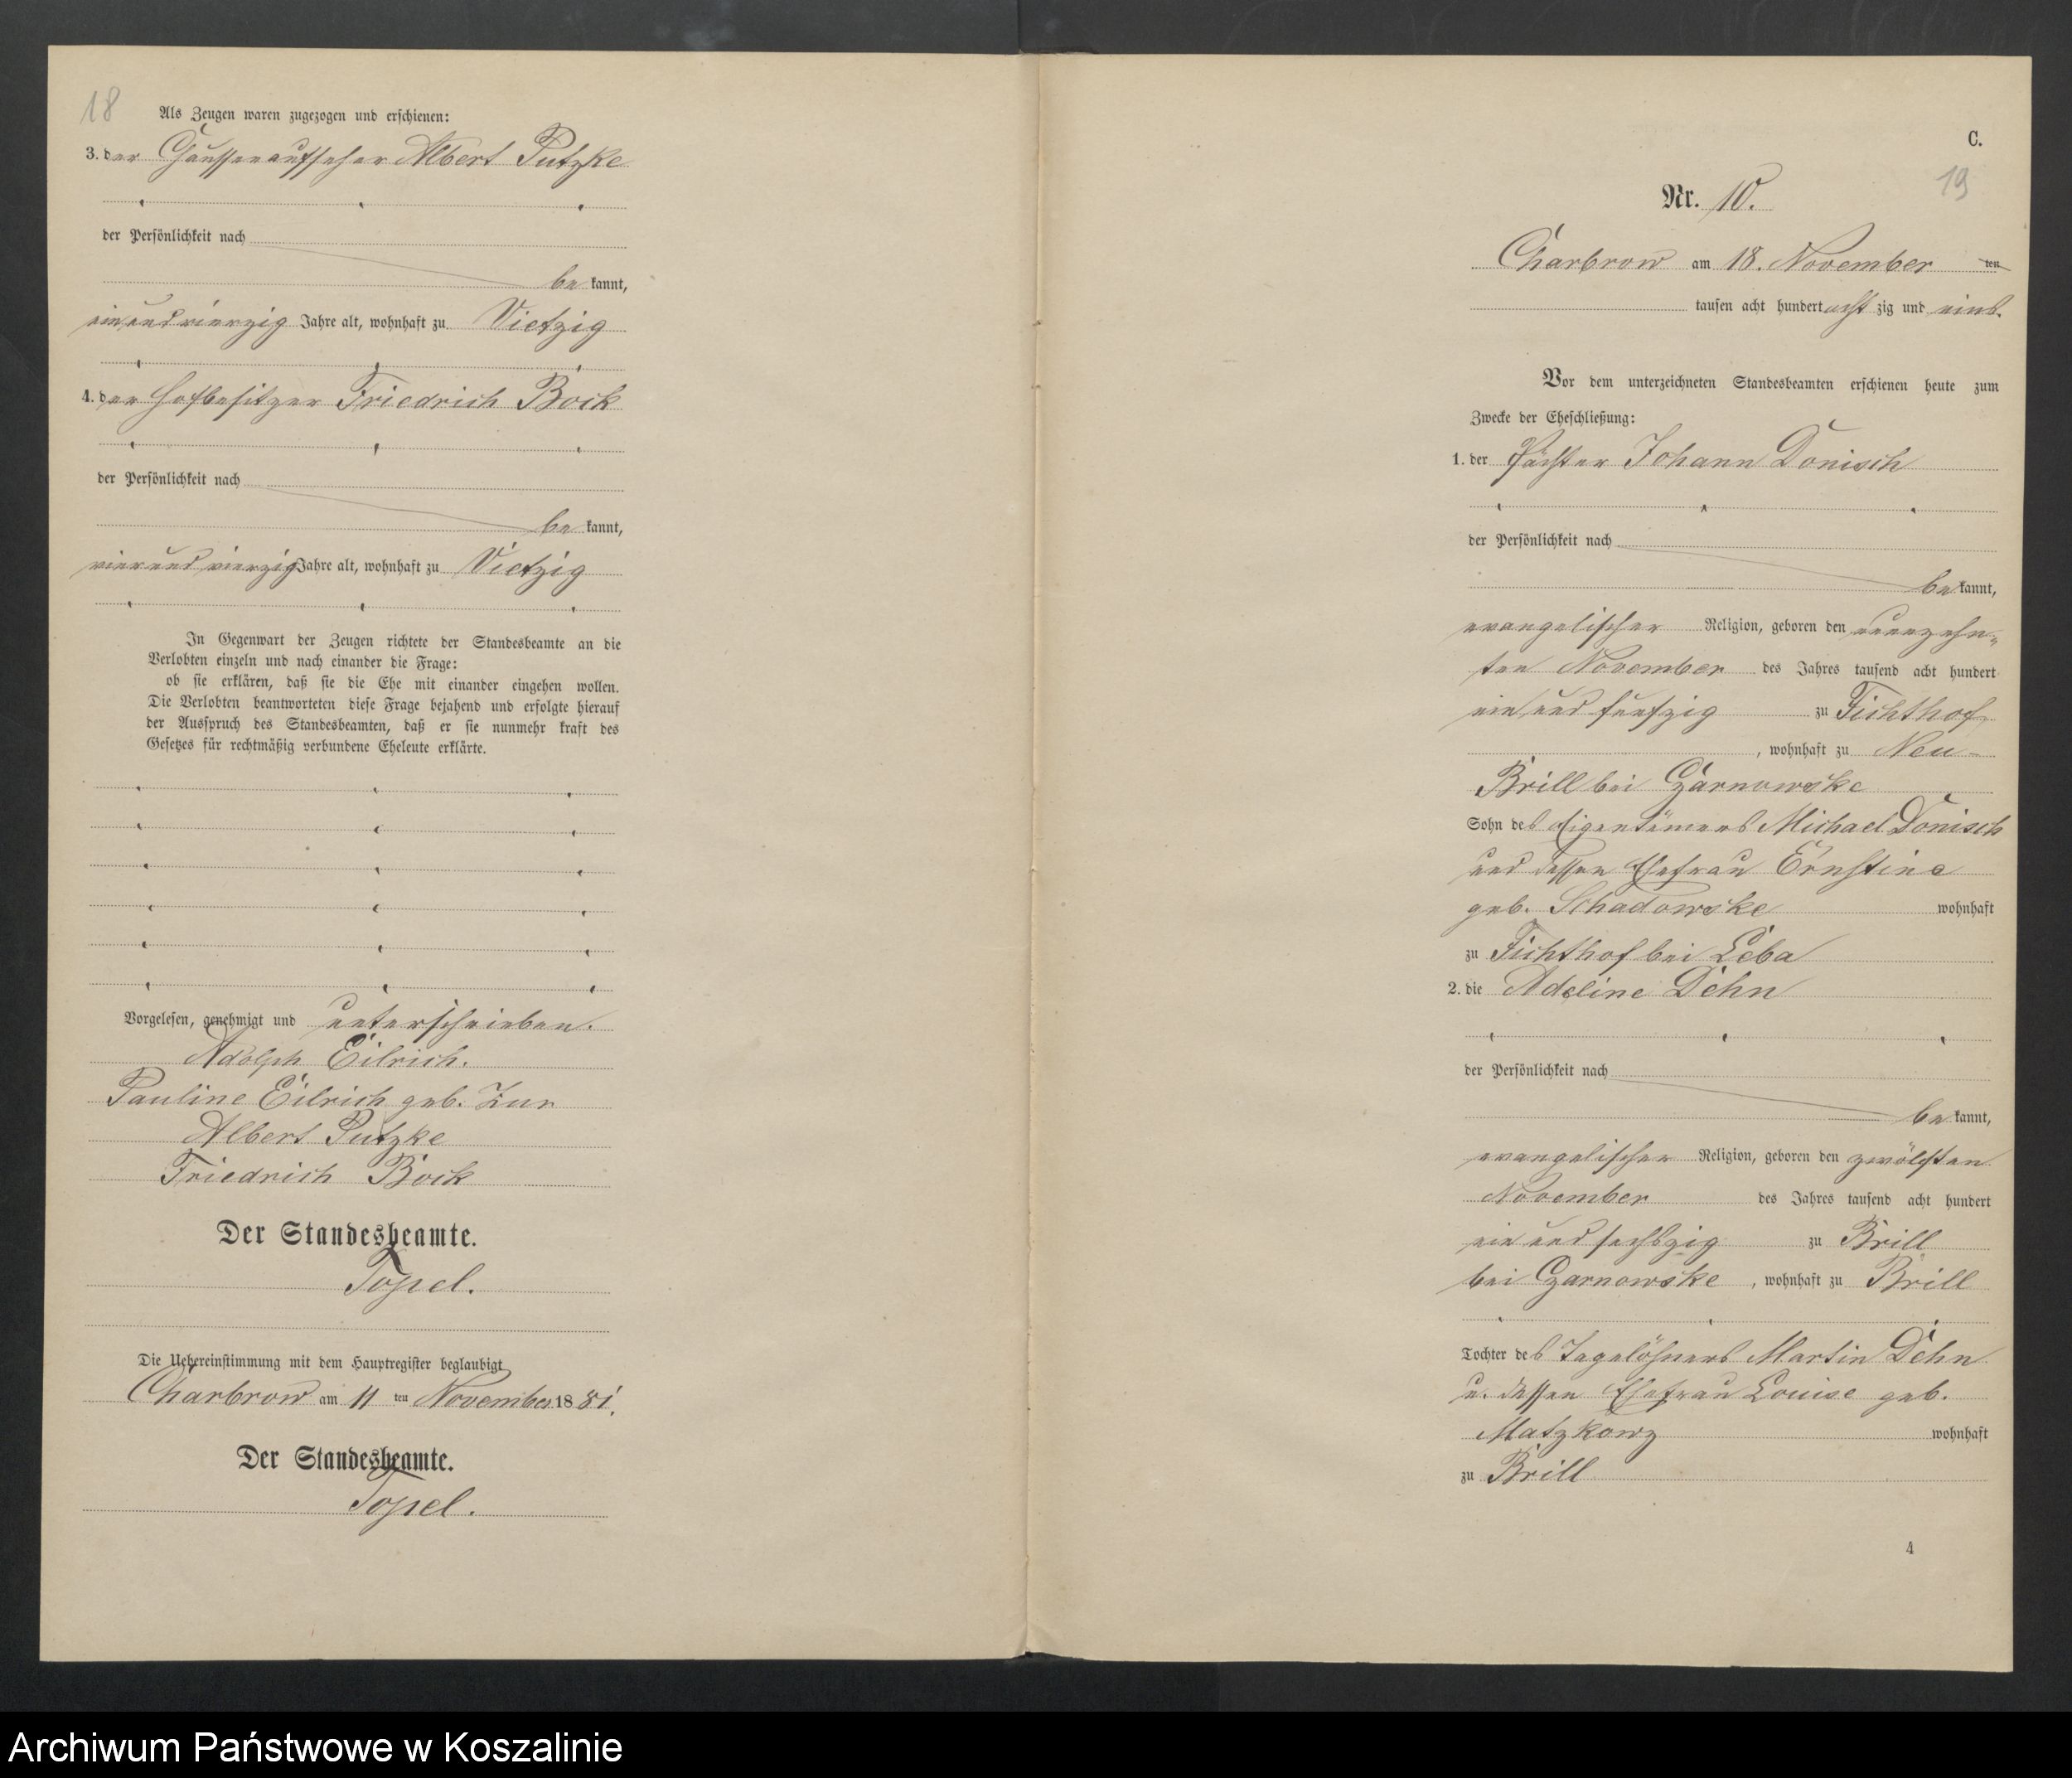 18
Als Zeugen waren zugezogen und erschienen:
3. der Chausseeaufseher Albert Putzke
der Persönlichkeit nach
be kannt,
ein und vierzig Jahre alt, wohnhaft zu Vietzig
4. der Hofbesitzer Friedrich Bock
der Persönlichkeit nach
be kannt,
vier und vierzig Jahre alt, wohnhaft zu Vietzig
In Gegenwart der Zeugen richtete der Standesbeamte an die
Verlobten einzeln und nach einander die Frage:
ob sie erklären, daß sie die Ehe mit einander eingehen wollen.
Die Verlobten beantworteten diese Frage bejahend und erfolgte hierauf
der Ausspruch des Standesbeamten, daß er sie nunmehr kraft des
Gesetzes für rechtmäßig verbundene Eheleute erklärte.
Vorgelesen, genehmigt und unterschrieben.
Adolph Eilrich.
Pauline Eilrich geb. Zur
Albert Putzke
Friedrich Bock
Der Standesbeamte.
Topel.
Die Uebereinstimmung mit dem Hauptregister beglaubigt
Charbrow am 11 ten November 18 81.
Der Standesbeamte.
Topel.
C.
19
Nr. 10.
Charbrow am 18. November ten
tausen acht hundert acht zig und eins.
Vor dem unterzeichneten Standesbeamten erschienen heute zum
Zwecke der Eheschließung:
1. der Pächter Johann Donisch
der Persönlichkeit nach
be kannt,
evangelischer Religion, geboren den neunzehn-
ten November des Jahres tausend acht hundert
ein und funfzig zu Fichthof
, wohnhaft zu Neu-
Brill bei Czarnowske
Sohn des Eigentümers Michael Donisch
und dessen Ehefrau Ernstine
geb. Schadowske wohnhaft
zu Fichthof bei Leba
2. die Adeline Dehn
der Persönlichkeit nach
be kannt,
evangelischer Religion, geboren den zwölften
November des Jahres tausend acht hundert
ein und sechszig zu Brill
bei Czarnowske , wohnhaft zu Brill
Tochter des Tagelöhners Martin Dehn
u. dessen Ehefrau Louise geb.
Matzkowz wohnhaft
zu Brill
4
Archiwum Państwowe w Koszalinie